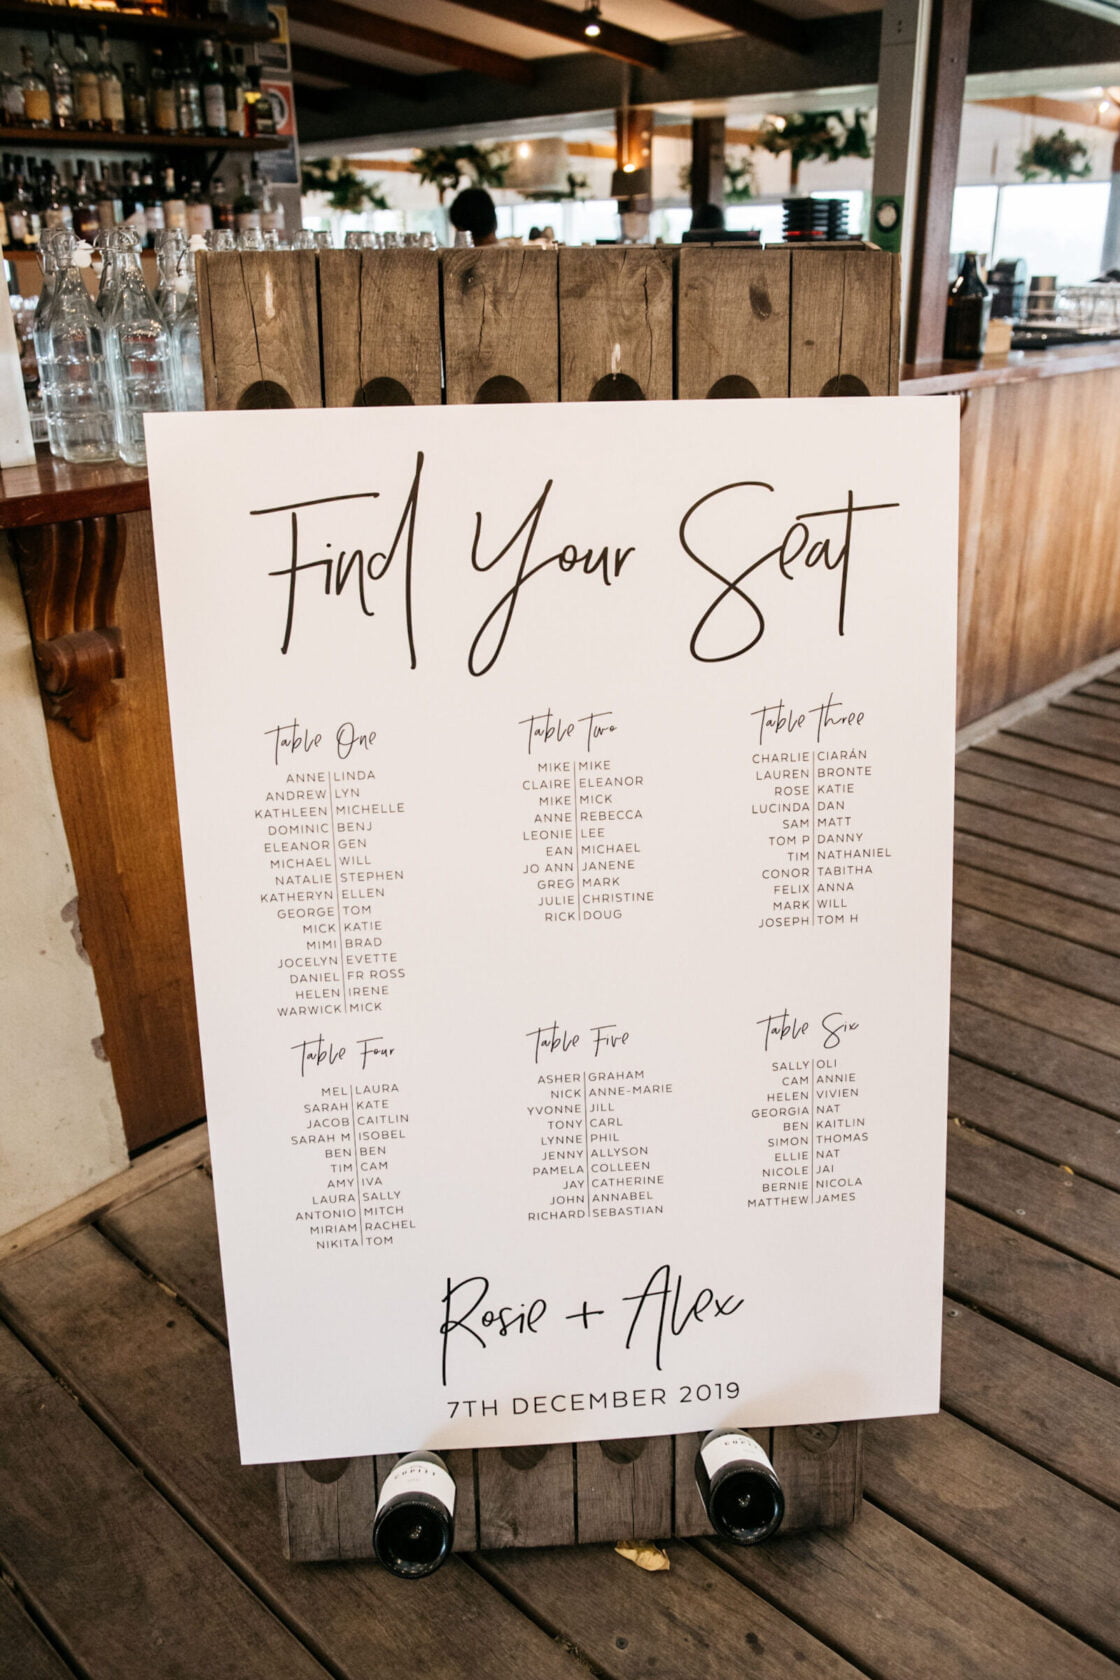 Find Your Seat
Table One
ANNE | LINDA
ANDREW | LYN
KATHLEEN | MICHELLE
DOMINIC | BENJ
ELEANOR | GEN
MICHAEL | WILL
NATALIE | STEPHEN
KATHERYN | ELLEN
GEORGE | TOM
MICK | KATIE
MIMI | BRAD
JOCELYN | EVETTE
DANIEL | FR ROSS
HELEN | IRENE
WARWICK | MICK
Table Two
MIKE | MIKE
CLAIRE | ELEANOR
MIKE | MICK
ANNE | REBECCA
LEONIE | LEE
EAN | MICHAEL
JO ANN | JANENE
GREG | MARK
JULIE | CHRISTINE
RICK | DOUG
Table Three
CHARLIE | CIARÁN
LAUREN | BRONTE
ROSE | KATIE
LUCINDA | DAN
SAM | MATT
TOM P | DANNY
TIM | NATHANIEL
CONOR | TABITHA
FELIX | ANNA
MARK | WILL
JOSEPH | TOM H
Table Four
MEL | LAURA
SARAH | KATE
JACOB | CAITLIN
SARAH M | ISOBEL
BEN | BEN
TIM | CAM
AMY | IVA
LAURA | SALLY
ANTONIO | MITCH
MIRIAM | RACHEL
NIKITA | TOM
Table Five
ASHER | GRAHAM
NICK | ANNE-MARIE
YVONNE | JILL
TONY | CARL
LYNNE | PHIL
JENNY | ALLYSON
PAMELA | COLLEEN
JAY | CATHERINE
JOHN | ANNABEL
RICHARD | SEBASTIAN
Table Six
SALLY | OLI
CAM | ANNIE
HELEN | VIVIEN
GEORGIA | NAT
BEN | KAITLIN
SIMON | THOMAS
ELLIE | NAT
NICOLE | JAI
BERNIE | NICOLA
MATTHEW | JAMES
Rosie + Alex
7TH DECEMBER 2019